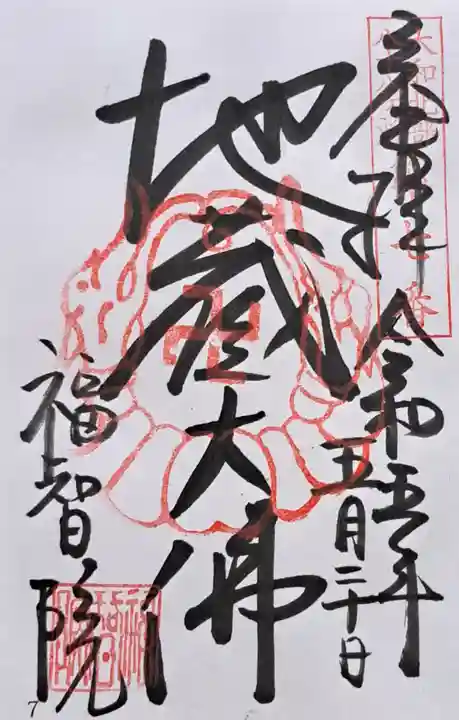 奉拝 令和五年
五月二十日
地蔵大佛
福智院
7